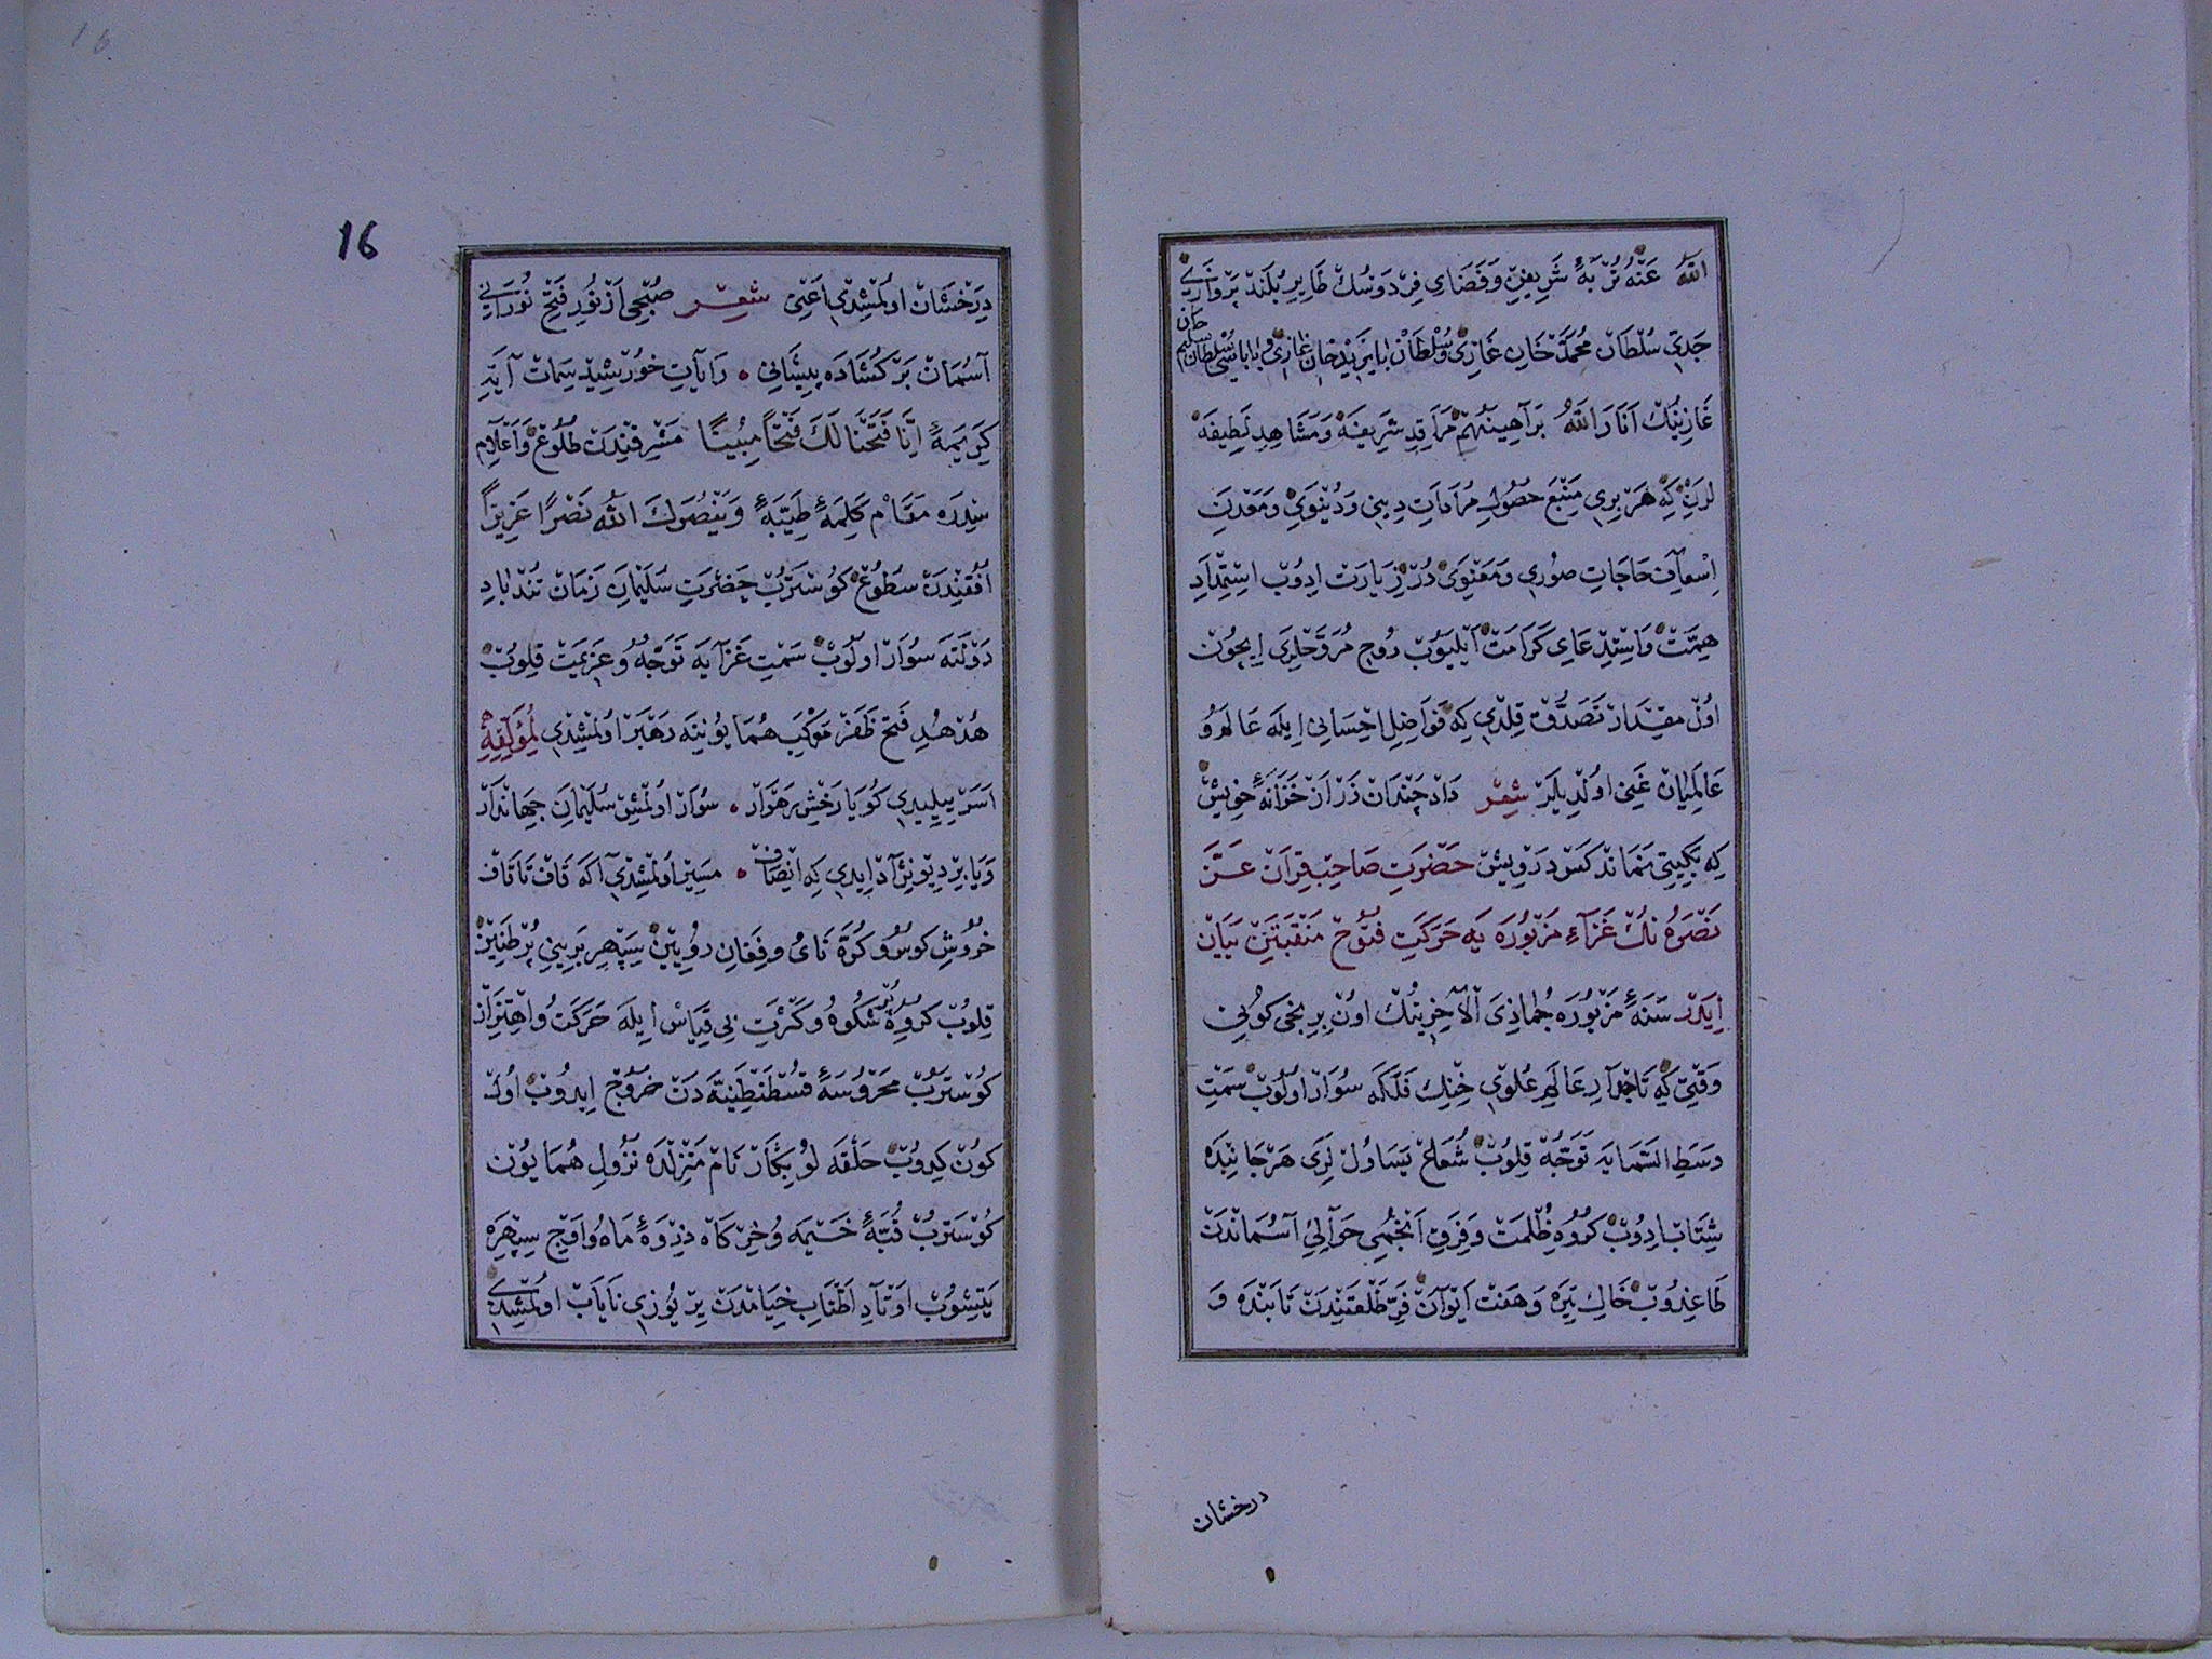 الله عَنْهُ تُرْبَهٔ شَرِيفِنِ وَفَضَاىِ فِرْدَوْسُكْ طَايِرِ بُلَنْدْ پَرْوَازِى
جَدِّى سُلْطَانْ مُحَمَّدْ خَانِ غَازِى وُ سُلْطَانْ بَايَزِيدْ خَانِ غَازِى وُ بَابَاسِى سُلْطَانْ سَلِيمْ خان
غَازِينُكْ اَنَارَ اللّٰهُ بَرَاهِينَهُمْ مَرَاقِدِ شَرِيفَهْ وَمَشَاهِدِ لَطِيفَهْ
لَرِنْ كِه هَرْ بِرِى مَنْبَعِ حُصُولِ مُرَادَاتِ دِينِى وَدُنْيَوِى وَمَعْدَنِ
اِسْعَافِ حَاجَاتِ صُورِى وَمَعْنَوِى دُرْ زِيَارَتْ ادُوبْ اِسْتِمْدَادِ
هِمَّتْ وَاسْتِدْعَاىِ كَرَامَتْ اَيْلَيُوبْ رُوحِ مُرَوَّحْلَرِى اِيچُونْ
اوُلْ مِقْدَارْ تَصَدُّقْ قِلْدِى كِه فَوَاضِلِ اِحْسَانِى اِيلَه عَالَمْ وُ
عَالَمِيَانْ غَنِى اوُلْدِيلَرْ شِعْر دَادْ چَنْدَانْ زَرْ اَزْ خَزَانَهٔ خِويشْ
كِه بَگِيتِى نَمَانْدْ كَسْ دَرْوِيشْ حَضْرَتِ صَاحِبْقِرَانْ عَزَّ
نَصْرُهُ نُكْ غَزَاءِ مَزْبُورَه يَه حَرَكَتِ فُتُوحْ مَنْقَبَتَنْ بَيَانْ
اِيدَرْ سَنَهٔ مَزْبُورَه جُمَاذِى الْآخِرِنُكْ اوُنْ بِرِنجِى كُونِى
وَقْتِى كِه تَاجْدَارِ عَالَمِ عُلْوِى خِنْكِ فَلَكَه سُوَارْ اوُلُوبْ سَمْتِ
وَسَطِ السَّمَايَه تَوَجُّهْ قِلُوبْ شُعَاعْ يَسَاوُلْ لَرِى هَرْ جَانِبَدَه
شِتَابْ ادُوبْ كُرُوهِ ظُلْمَتْ وَفِرَقِ اَنْجُمِى حَوَالِئِ آسُمَانْدَنْ
طَاغِدُوبْ خَاكِ تِيرَه وَهَفْتْ اَيْوَانْ فَرِّ طَلْعَتِنْدَنْ تَابَنْدَه وَ
درخشان
16
دِرَخْشَانْ اوُلْمِشْدِى اَعْنِى شِعْر صُبْحِى اَزْ نُورِ فَتْحْ نُورَانِى
آسُمَانْ بَرْ كُشَادَه پِيشَانِى رَايَاتِ خُورْشِيدْ سِمَاتْ آيَتِ
كَرِيمَهٔ اِنَّا فَتَحْنَا لَكَ فَتْحًا مُبِينًا مَشْرِقِنْدَنْ طُلُوعْ وَاَعْلَامِ
سِدْرَه مَقَامْ كَلِمَهٔ طَيِّبَهٔ وَيَنْصُرَكَ اللّٰهُ نَصْرًا عَزِيزًا
اُفْقِنْدَنْ سُطُوعْ كُوسْتَرُبْ حَضْرَتِ سُلَيْمَانِ زَمَانْ تُنْدْبَادِ
دَوْلَتَه سُوَارْ اوُلُوبْ سَمْتِ غَزَايَه تَوَجُّهْ وُ عَزِيمَتْ قِلُوبْ
هُدْهُدِ فَتْحْ ظَفَرْ مَوْكِبِ هُمَايُونِنَه رَهْبَرْ اوُلْمِشْدِى لِمُؤَلِّفِهِ
اَسَرْ يِيلِيدِى كُويَا رَخْشِ رَهْوَارْ سُوَارْ اوُلْمِشْ سُلَيْمَانِ جِهَانْدَارْ
وَيَا بِرْ دِيوْ نِژَادْ اِيدِى كِه اِنْصَافْ مَسِيرْ اوُلْمِشْدِى اَكَه قَافْ تَا قَافْ
خُرُوشِ كُوسْ وُ كُرَه نَاىْ وِفِغَانِ رُويِينْ سِپِهْرِ بَرِينِى پُرْ طَنِينْ
قِلُوبْ كُرُوهِ پُرْ شُكُوهْ وُ كَثْرَتِ بِى قِيَاسْ اِيلَه حَرَكَتْ وُ اِهْتِزَازْ
كُوسْتَرُبْ مَحْرُوسَهٔ قُسْطَنْطِنِيَّه دَنْ خُرُوجْ ايدُوبْ اوُلْ
كُونْ كِدُوبْ حَلْقَه لُو بِكَارْ نَامْ مَنْزِلْدَه نُزُولِ هُمَايُونْ
كُوسْتَرُبْ قُبَّهٔ خَيْمَه وُ خِرْكَاهْ ذِرْوَهٔ مَاهْ وُ اَوْجِ سِپِهْرَه
يَتِشُوبْ اَوْتَادِ اَطْنَابِ خِيَامْدَنْ يِرْ يُوزِى نَايَابْ اوُلْمِشْدِى